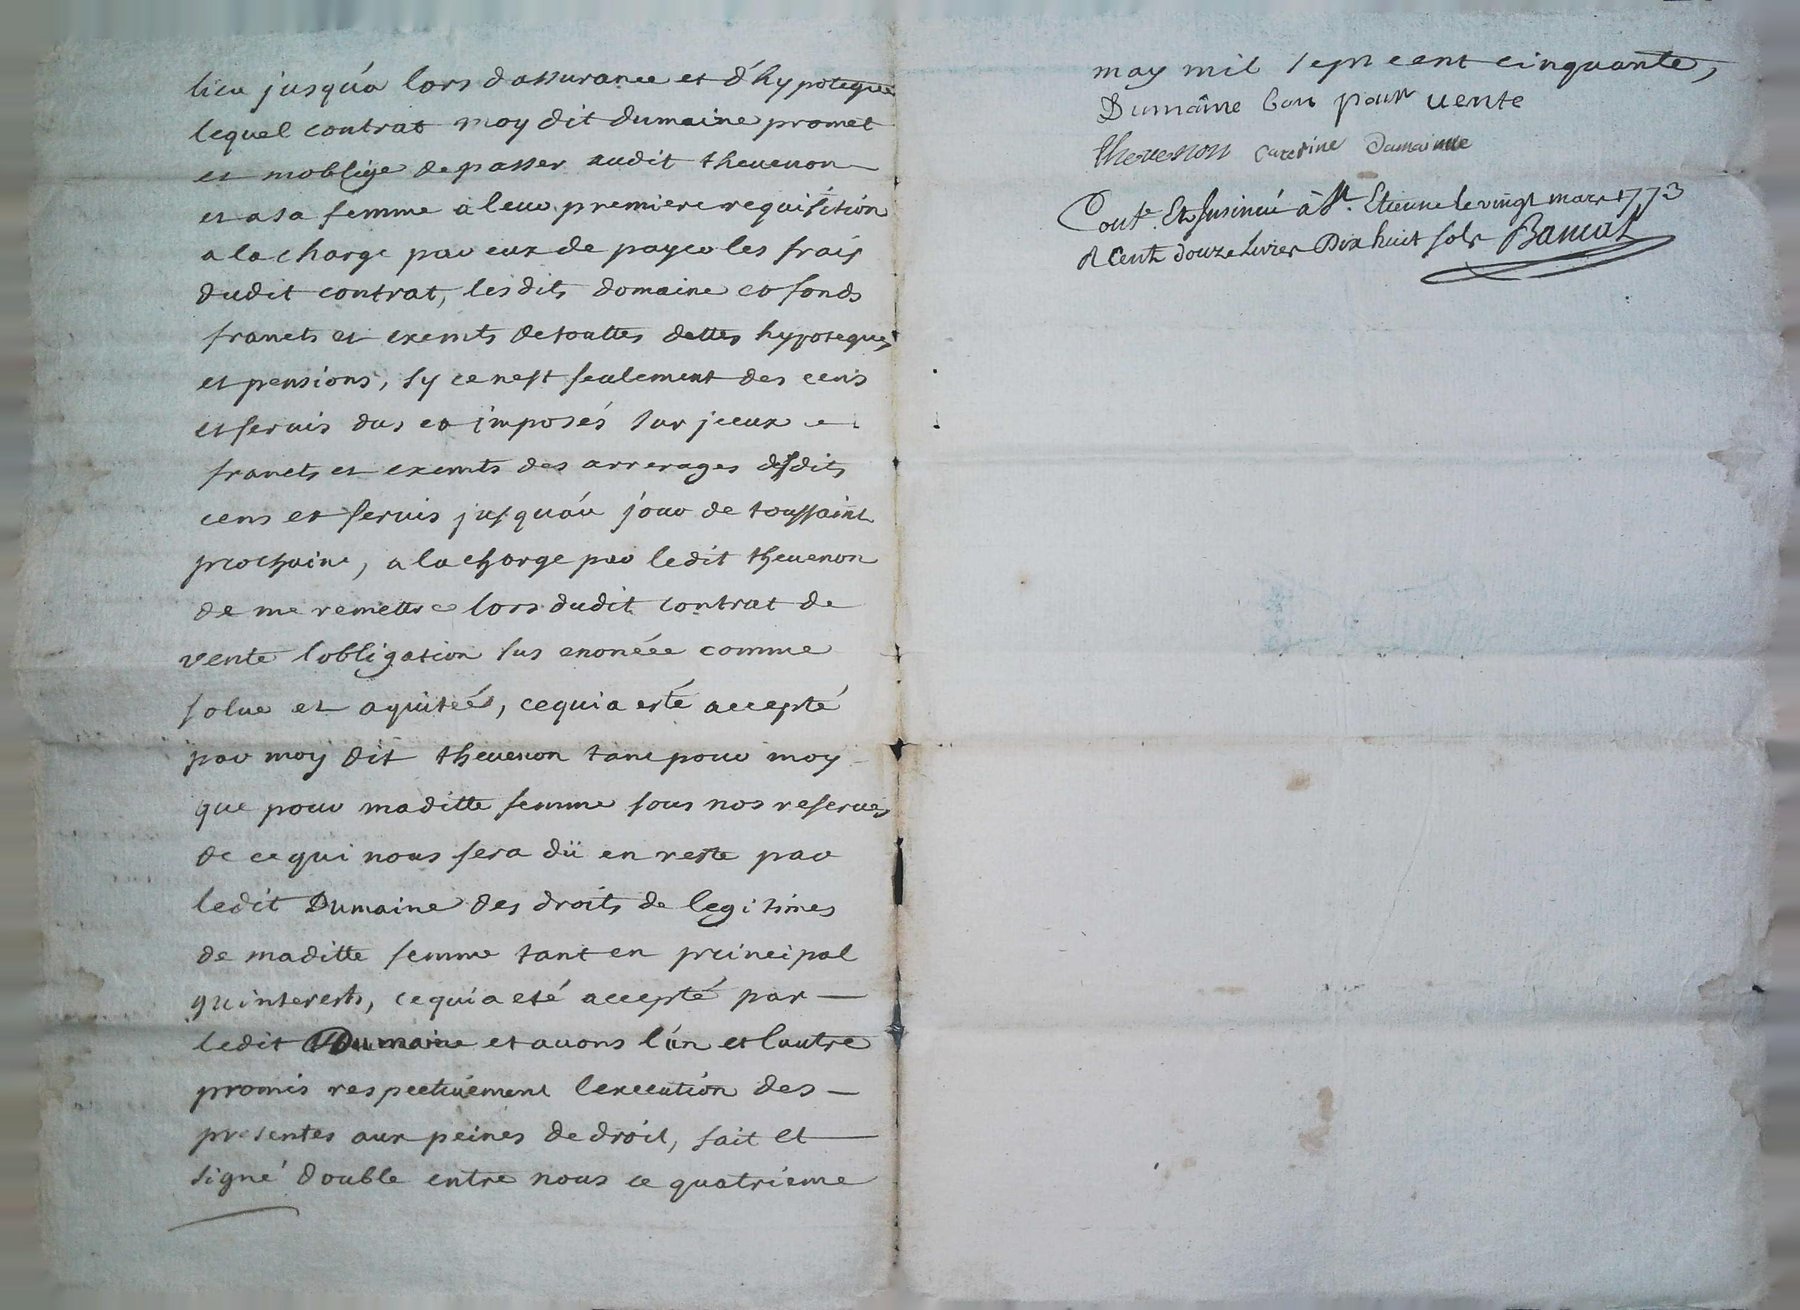 lieu jusqu'a lors d'assurance et d'hypoteque
lequel contrat moy dit dumaine promet
et moblige de passer audit thevenon
et a sa femme a leur premiere requisition
a la charge par eux de payer les frais
dudit contrat, lesdits domaine et fonds
francts et exemts de touttes dettes hypoteques
et pensions, sy ce nest seulement des cens
et servis dus et imposés sur jceux
francts et exemts des arrerages desdits
cens et servis jusqu'au jour de toussaint
prochaine, a la charge par ledit thevenon
de me remettre lors dudit contrat de
vente lobligation sus enoncée comme
solue et aquitée, ce qui a esté accepté
par moy dit thevenon tant pour moy
que pour maditte femme sous nos reserves
de ce qui nous sera dü en reste par
ledit Dumaine des droits de legitimes
de maditte femme tant en principal
quinterests, ce qui a eté accepté par
ledit Dumaine et avons l'un et lautre
promis respectivement lexecution des
presentes aux peines de droit, fait et
signé double entre nous ce quatrieme
may mil sept cent cinquante,
Dumaine bon pour vente
thevenon caterine Dumainne
Conté. Et Insinué à St. Etienne le vingt mars 1773
R cent douze Livres Dix huit sols Bancal